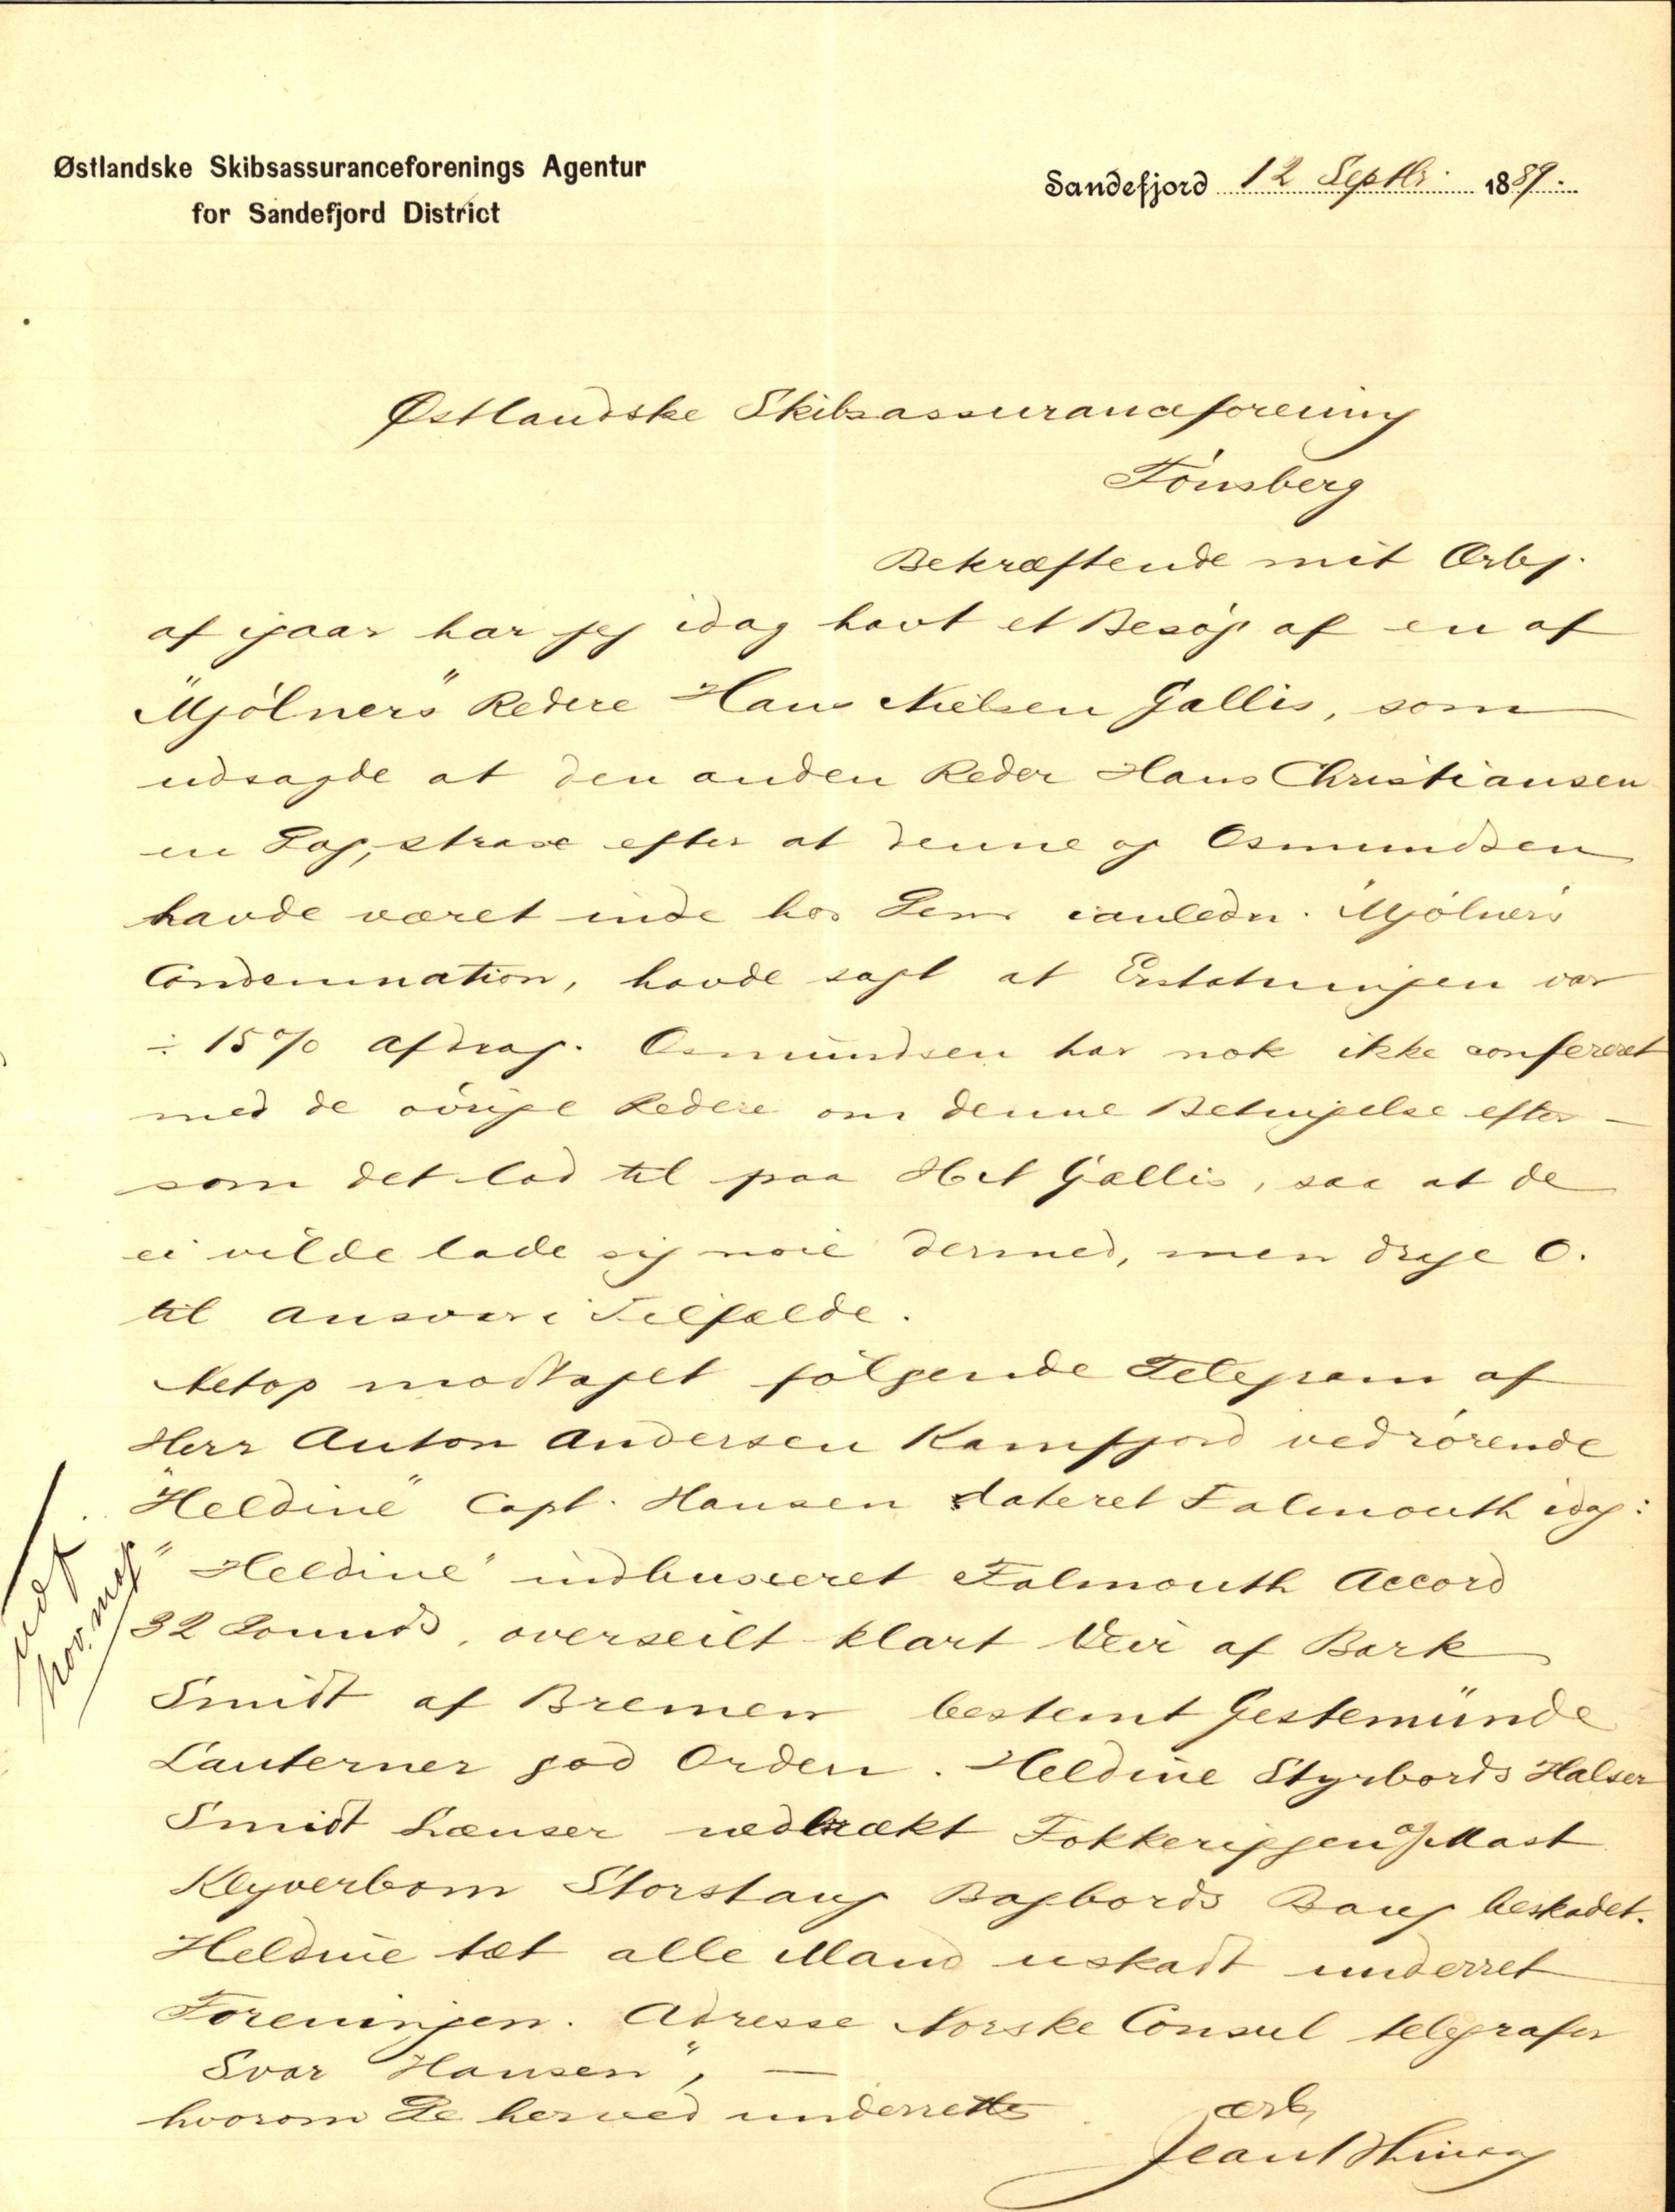 Østlandske Skibsassuranceforenings Agentur
for Sandefjord District
Sandefjord 12 Septbr. 1889.
Østlandske Skibsassuranceforening
Tønsberg
Bekræftende mit Ærbg.
af igaar har jeg idag havt et Besøg af en af
"Mjølners" Redere Hans Nielsen Gallis, som
udsagde at den anden Reder Hans Christiansen
en Dag, strax efter at denne og Osmundsen
havde været inde hos Dem i anledn. Mjølners
Condemnation, havde sagt at Erstatningen var
÷ 15% Afdrag. Osmundsen har nok ikke confereret
med de øvrige Redere om denne Betingelse efter-
som det lod til paa Gallis, saa at de
ei vilde lade sig nøie dermed, men drage O.
til Ansvar i Tilfælde.
Netop modtaget følgende Telegram af
Herr Anton Andersen Kamfjord vedrørende
"Heldine" Capt. Hansen dateret Falmouth idag:
"Heldine" indbuxeret Falmouth Accord
32 Pounds, overseilt klart Veir af Bark
Smidt af Bremen bestemt Gestemünde
Lanterner god Orden. Heldine Styrbords Halser
Smidt Lænser nedbrækt Fokkeriggen og Mast
Klyverbom Storstang Bagbords Boug beskadet.
Heldine tæt alle Mand uskadt underret
Foreningen. Adresse Norske Consul telegrafer
Svar Hansen", —
hvorom De herved underrettes
ærb.